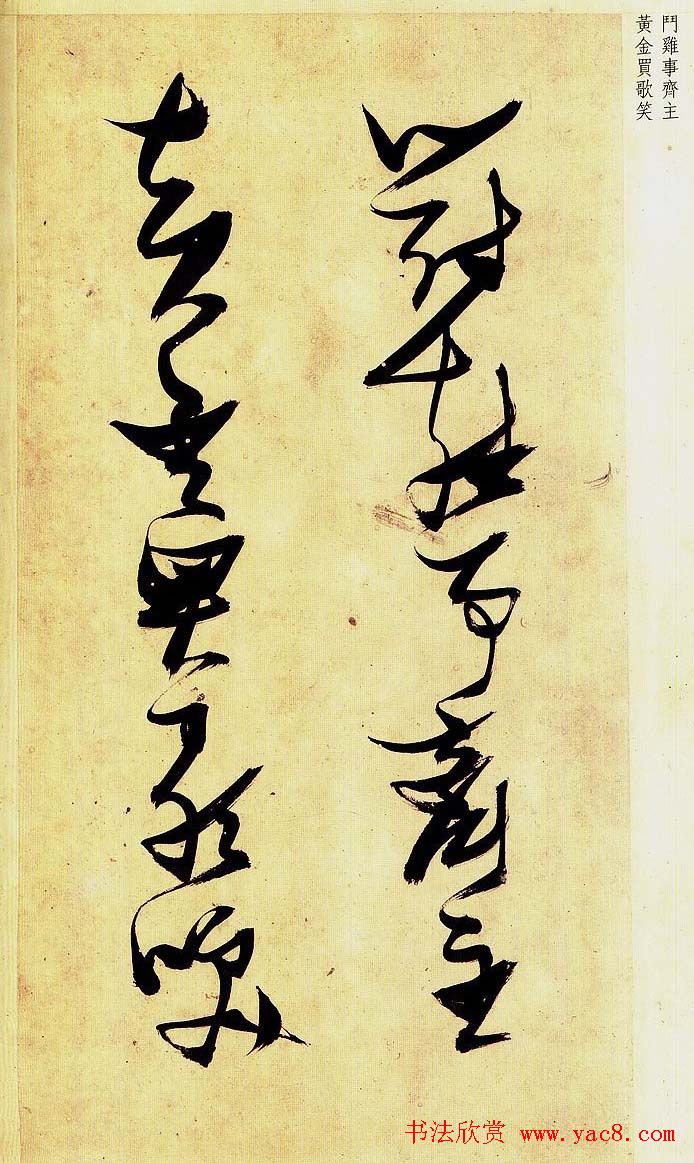 鬥雞事齊主
黃金買歌笑
鬥雞事齊主
黃金買歌笑
书法欣赏 www.yac8.com